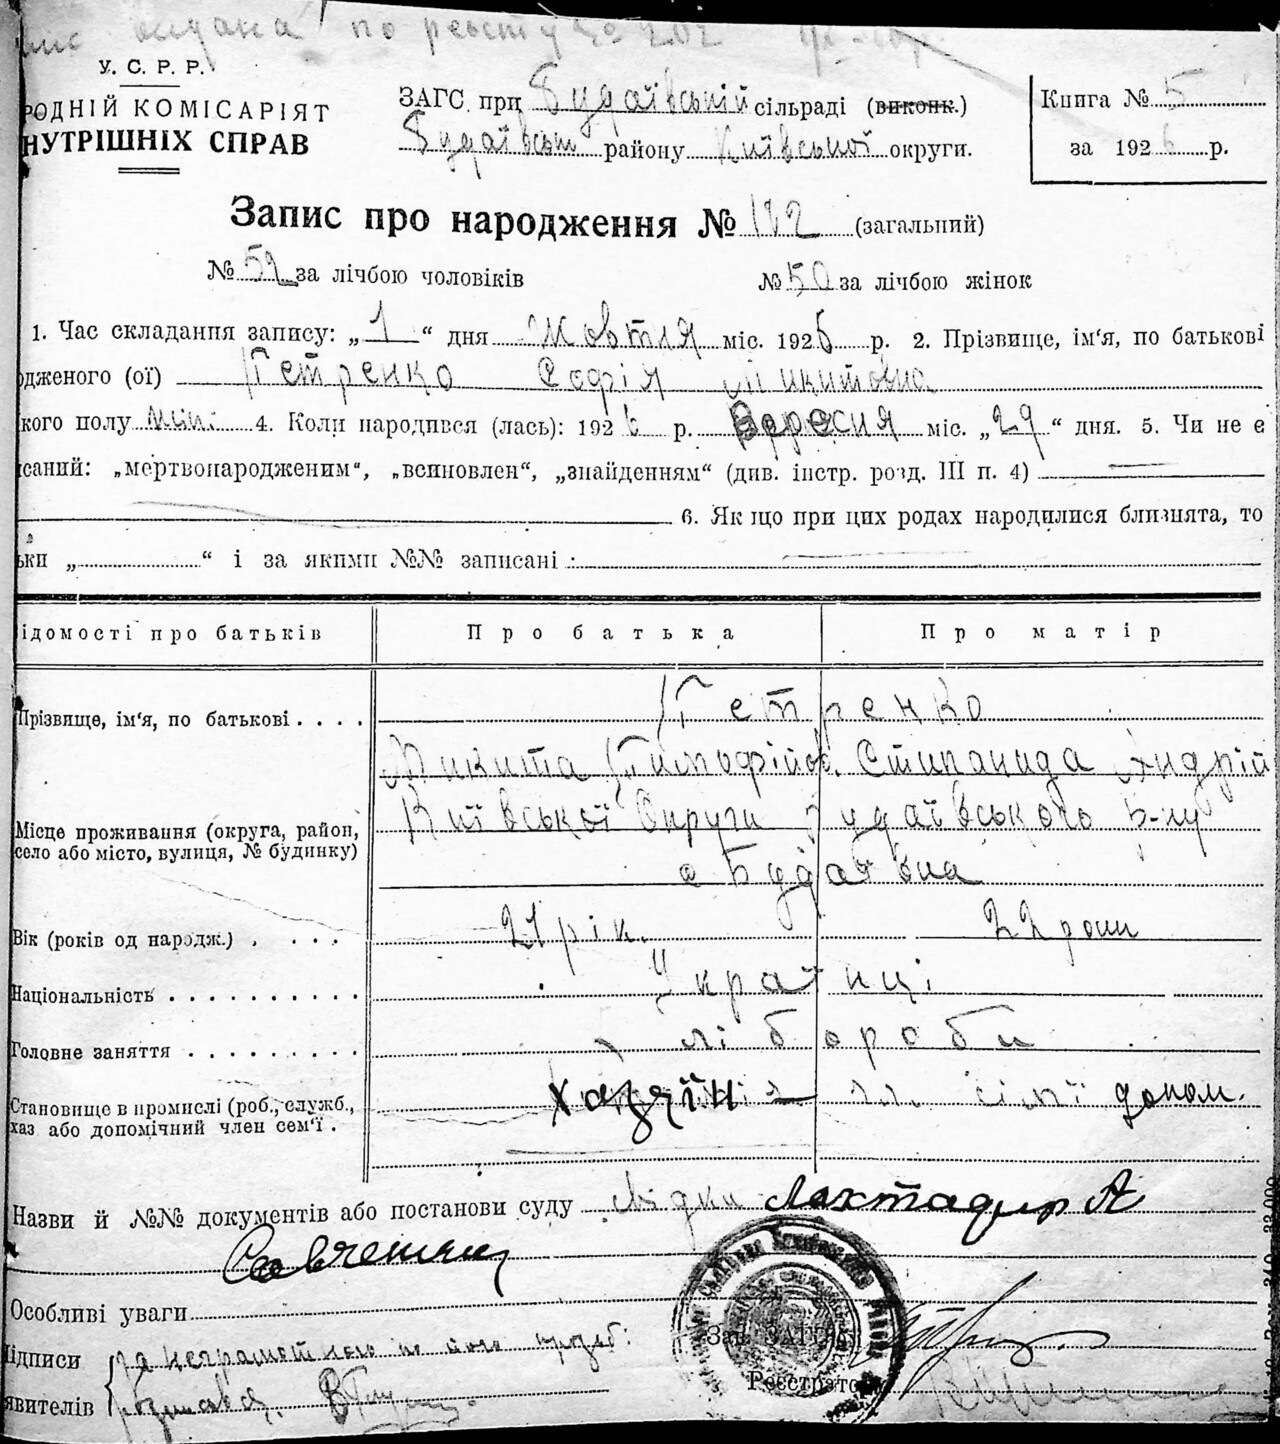 видана по реєстру № 202
У. С. Р. Р.
РОДНІЙ КОМІСАРІЯТ
НУТРІШНІХ СПРАВ
ЗАГС при Будаївській сільраді (виконк.)
Будаївськ району Київської округи.
Книга № 5
за 1926 р.
Запис про народження № 102 (загальний)
№ 52 за лічбою чоловіків
№ 50 за лічбою жінок
1. Час складання запису: „ 1 “ дня Жовтня міс. 1926 р. 2. Прізвище, ім‘я, по батькові
одженого (ої) Петренко Софія Микитовна
кого полу жін. 4. Коли народився (лась): 1926 р. Вересня міс. „29“ дня. 5. Чи не є
исаний: „мертвонародженим“, „всиновлен“, „знайденням“ (див. інстр. розд. III п. 4)
6. Якщо при цих родах народилися близнята, то
ьки „ “ і за якими №№ записані :
ідомості про батьків
Про батька
Про матір
Прізвище, ім‘я, по батькові . . . .
Петренко
Микита Тимофійов. Стипанида Андрій
Місце проживання (округа, район,
село або місто, вулиця, № будинку)
Київської Округи Будаївського Р-ну
с Будаївка
Вік (років од народж.) . . . . .
21 рік.
22 роки
Національність . . . . . . . . . .
Українці
Головне заняття . . . . . . . . .
хлібороби
Становище в промислі (роб., служб.,
хаз або допомічний член сем‘ї .
хазяїн — чл. сімї допом.
Назви й №№ документів або постанови суду Свідки Лохтадир А
Савченко
Особливі уваги
ідписи
явителів
за неграмотного по його прозб:
розписався.
Зав. ЗАГС‘у
Реєстратор